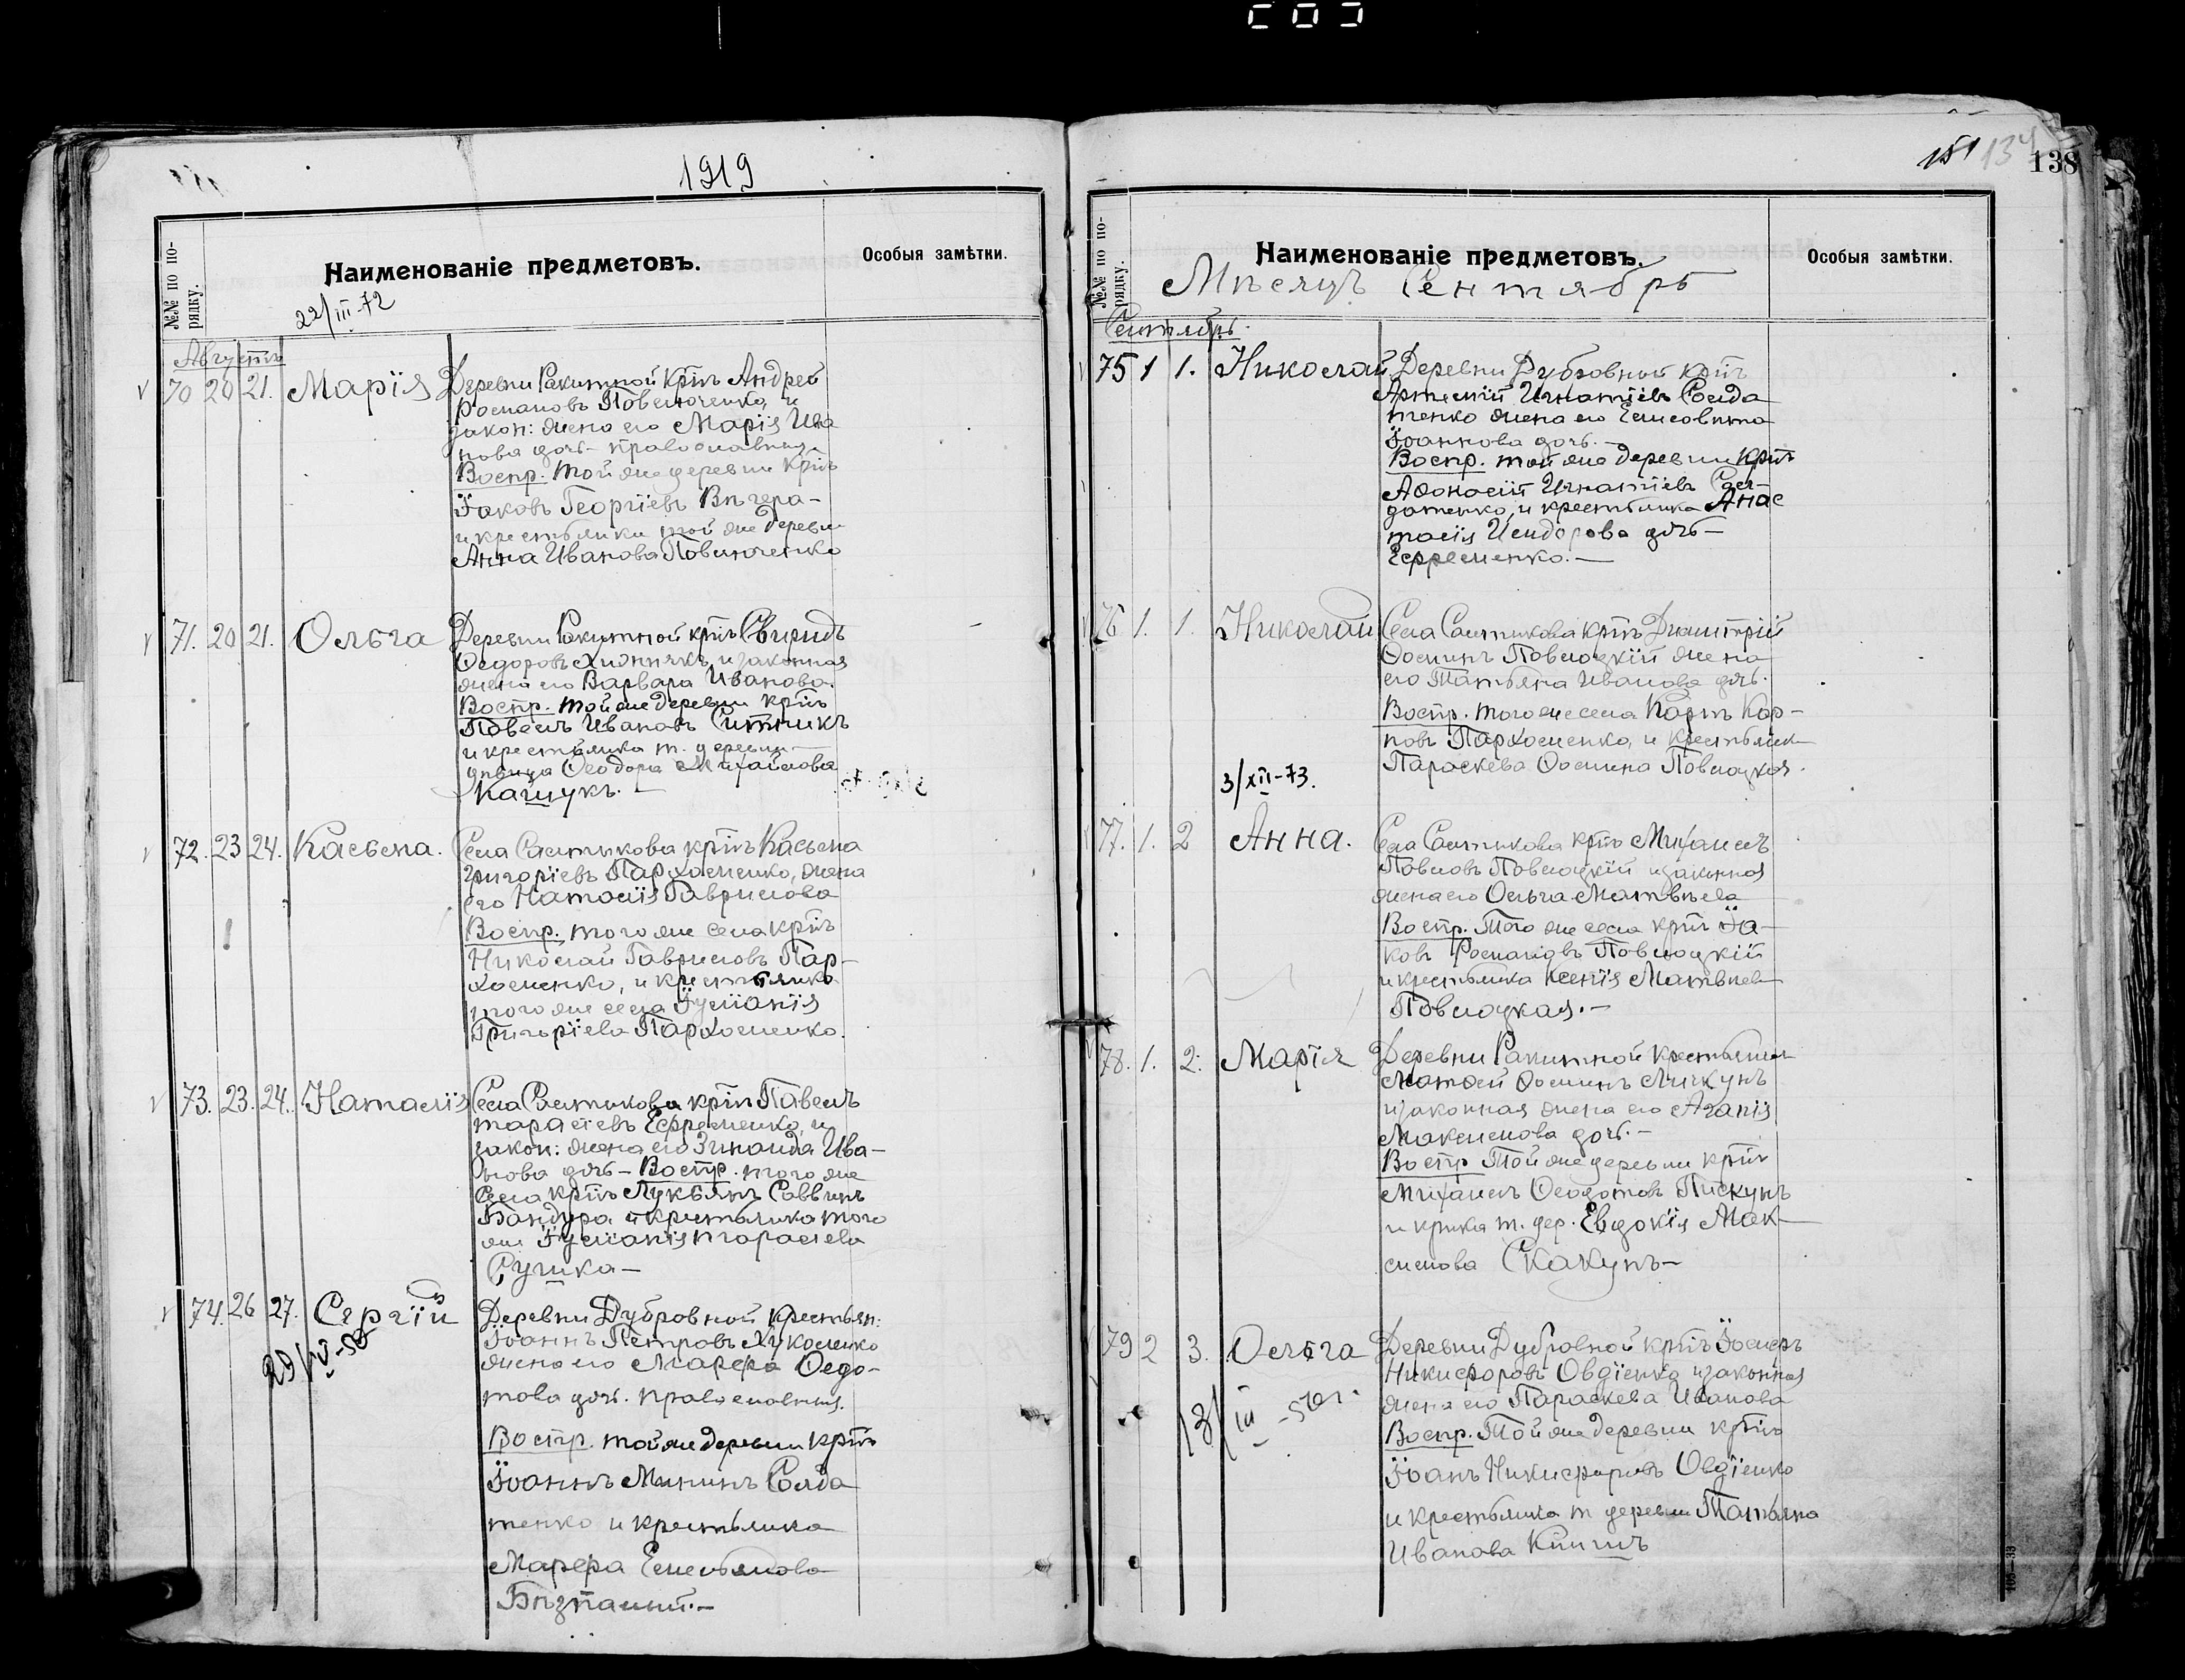 1919
№№ по по-
рядку.
Наименованіе предметовъ.
Особыя замѣтки.
22/III-72
Августъ
70 20 21. Марія Деревни Ракитной крⷭ҇тъ Андрей
Романовъ Повшоченко, и
закон: жена его Марія Ива
нова дочь - православныя
Воспр. той же деревни крⷭ҇тъ
Іаковъ Георгіевъ Вечера-
и крестьянка той же деревни
Анна Иванова Повшоченко
71. 20 21. Ольга Деревни Ракитной крⷭ҇тъ Свиридъ
Ѳедоровъ Хижнякъ и законная
жена его Варвара Иванова.
Воспр. той же деревни крⷭ҇тъ
Павелъ Ивановъ Ситникъ
и крестьянка т. деревни
дѣвица Ѳеодора Михайлова
Кащукъ. -
72. 23 24. Касьяна. Села Салтыкова крⷭ҇тъ Касьяна
Григоріевъ Пархоменко, жена
его Наталія Гаврилова
Воспр. того же села крⷭ҇тъ
Николай Гавриловъ Пар-
хоменко, и крестьянка
того же села Іуліанія
Григоріева Пархоменко.
73. 23. 24. Наталія Села Салтыкова крⷭ҇тъ Павелъ
Тарасіевъ Ефременко, и
закон: жена его Зинаида Ива-
нова дочь - Воспр. того же
Села крⷭ҇тъ Лукьянъ Саввинъ
Бандура и крестьянка того
же Іуліанія Тарасіева
Сушка -
74. 26 27. Сергій Деревни Дубровной крестьян:
Іоаннъ Петровъ Хукаленко
жена его Марфа Ѳедо-
това дочь. православныя.
Воспр. той же деревни крⷭ҇тъ
Іоаннъ Мининъ Солда
тенко и крестьянка
Марфа Емельянова
151 134
138
№№ по по-
рядку.
Наименованіе предметовъ.
Особыя замѣтки.
Мѣсяцъ Сентябрь
Сентябрь.
75 1 1. Николай Деревни Дубровной крⷭ҇тъ
Артемій Игнатіевъ Солда
тенко жена его Елисавета
Іоаннова дочь. -
Воспр. той же деревни крⷭ҇тъ
Аѳонасій Игнатіевъ Сол-
датенко, и крестьянка Анас
тасія Исидорова дочь -
Ефременко. -
76 1. 1. Николай Села Салтыкова крⷭ҇тъ Димитрій
Ѳоминъ Повшоцкій жена
его Татьяна Иванова дочь.
Воспр. того же села Карпъ Кар-
повъ Пархоменко, и крестьянка
Параскева Ѳомина Повшоцкая.
3/XII-73.
77. 1. 2 Анна. Села Салтыкова крⷭ҇тъ Михаилъ
Павловъ Повшоцкій и законная
жена его Ольга Матвѣева
Воспр. Того же села крⷭ҇тъ Іа-
ковъ Романовъ Повшоцкій
и крестьянка Ксенія Матвѣева
Повшоцкая. -
78. 1. 2. Марія Деревни Ракитной крестьянинъ
Матѳей Ѳоминъ Личкунъ
и законная жена его Агапія
Максимова дочь. -
Воспр Той же деревни крⷭ҇тъ
Михаилъ Ѳеодотовъ Пискунъ
и крⷭ҇тка т. дер. Евдокія Мак-
симова Скакунъ -
79 2 3. Ольга Деревни Дубровной крⷭ҇тъ Іосифъ
Никифоровъ Овдіенко и законная
жена его Параскева Иванова
Воспр. Той же деревни крⷭ҇тъ
Іоанъ Никифоровъ Овдіенко
и крестьянка т деревни Татьяна
Иванова